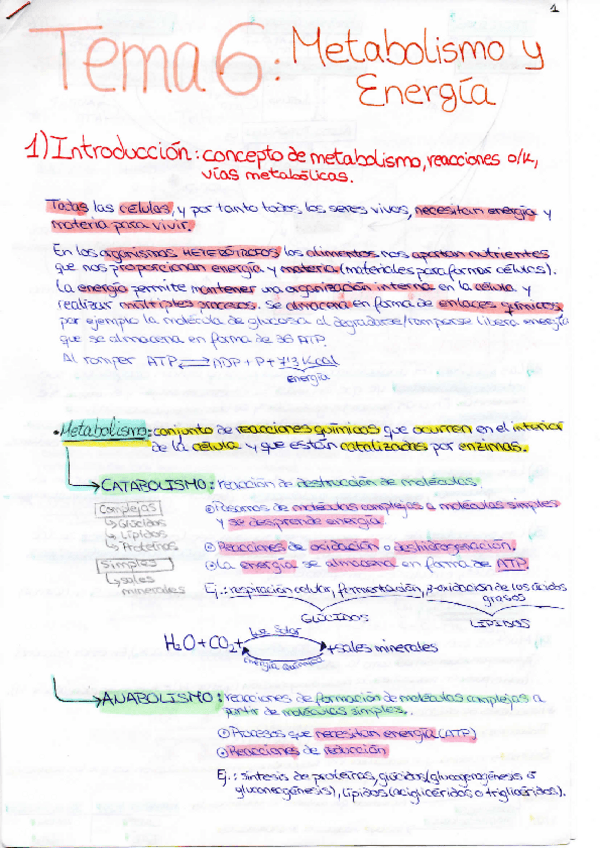 1
Tema 6: Metabolismo y
Energía
1) Introducción: concepto de metabolismo, reacciones o/r,
vías metabólicas.
Todas las células, y por tanto todos los seres vivos, necesitan energía y
materia para vivir.
En los organismos HETERÓTROFOS los alimentos nos aportan nutrientes
que nos proporcionan energía y materia (materiales para formar células).
La energía permite mantener una organización interna en la célula y
realizar múltiples procesos. Se almacena en forma de enlaces químicos,
por ejemplo la molécula de glucosa al degradarse/romperse libera energía
que se almacena en forma de 36 ATP.
Al romper ATP ⇌ ADP + P + 7'3 Kcal
energía
• Metabolismo: conjunto de reacciones químicas que ocurren en el interior
de la célula y que están catalizadas por enzimas.
CATABOLISMO: reacción de destrucción de moléculas.
Complejas
↳ Glúcidos
↳ Lípidos
↳ Proteínas
Simples
↳ sales
minerales
Pasamos de moléculas complejas a moléculas simples
y se desprende energía.
Reacciones de oxidación o deshidrogenación.
La energía se almacena en forma de ATP.
Ej.: respiración celular, fermentación, β-oxidación de los ácidos
grasos
GLÚCIDOS
LÍPIDOS
H₂O + CO₂ + luz solar + sales minerales
energía química
ANABOLISMO: reacciones de formación de moléculas complejas a
partir de moléculas simples.
Procesos que necesitan energía (ATP)
Reacciones de reducción
Ej.: síntesis de proteínas, glúcidos (glucogenogénesis o
gluconeogénesis), lípidos (acilglicéridos o triglicéridos).